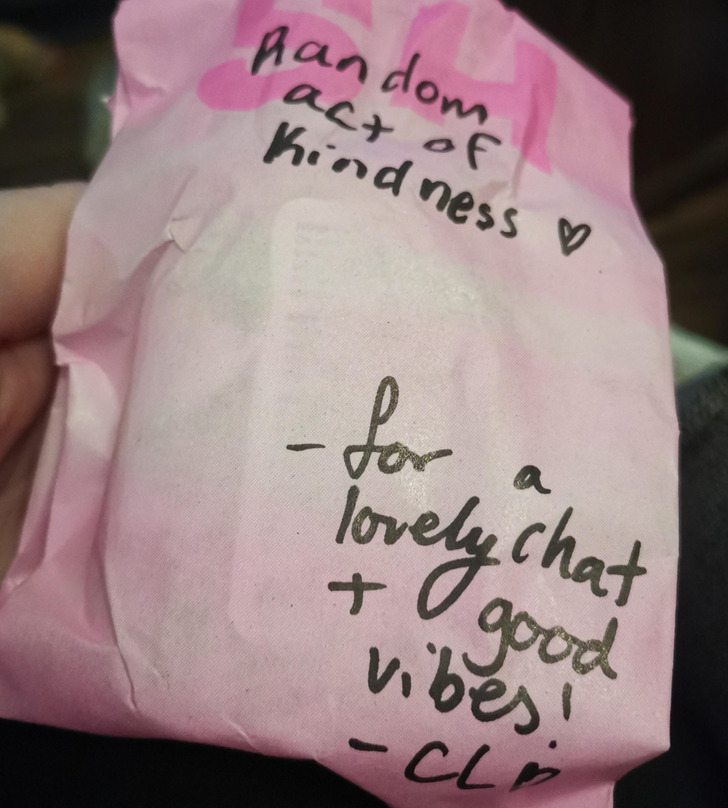 SH
Random
act of
Kindness ♡
- for a
lovely chat
+ good
vibes!